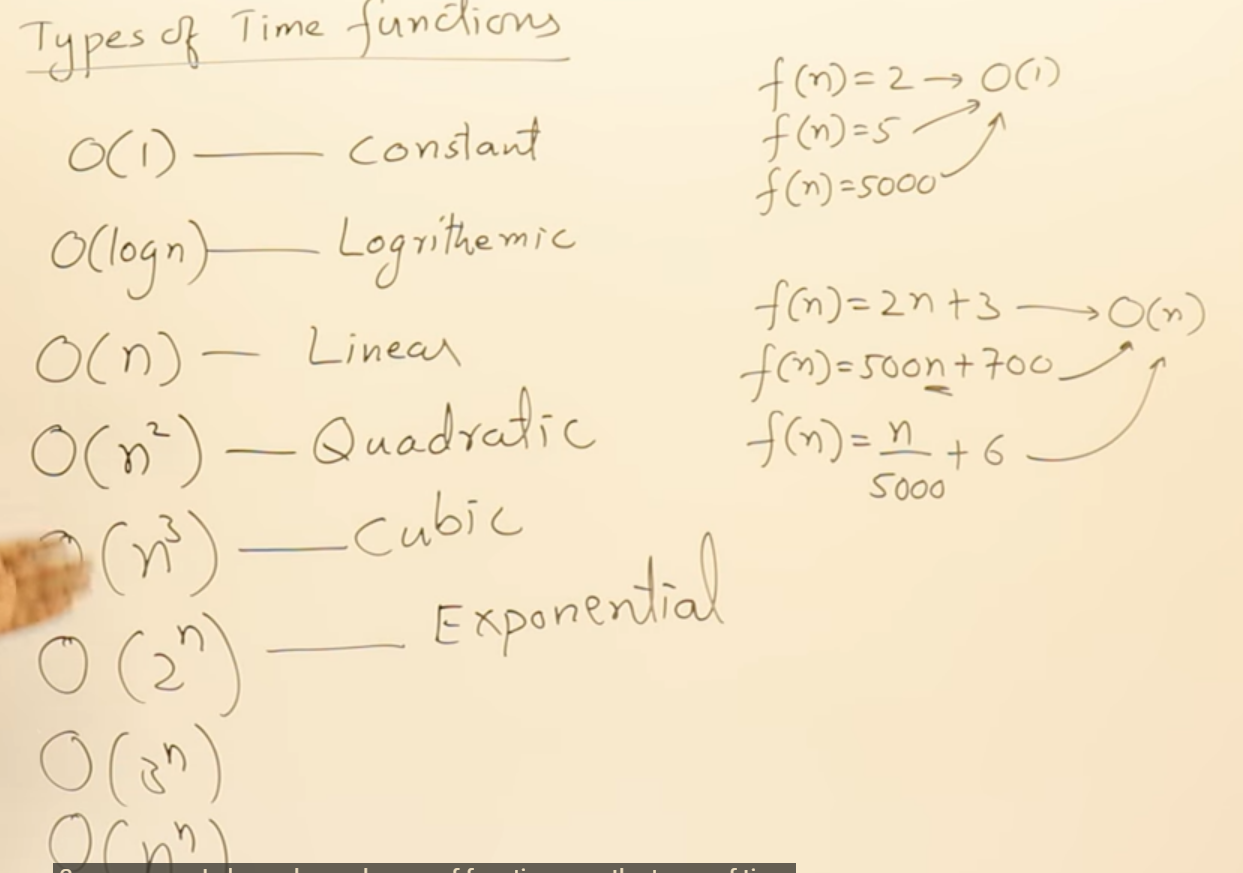 Types of Time functions
O(1) — Constant
O(logn) — Logrithemic
O(n) — Linear
O(n²) — Quadratic
(n³) — Cubic
O(2ⁿ) — Exponential
O(3ⁿ)
O(nⁿ)
f(n)=2 → O(1)
f(n)=5
f(n)=5000
f(n)=2n+3 → O(n)
f(n)=500n+700
f(n)=n/5000+6